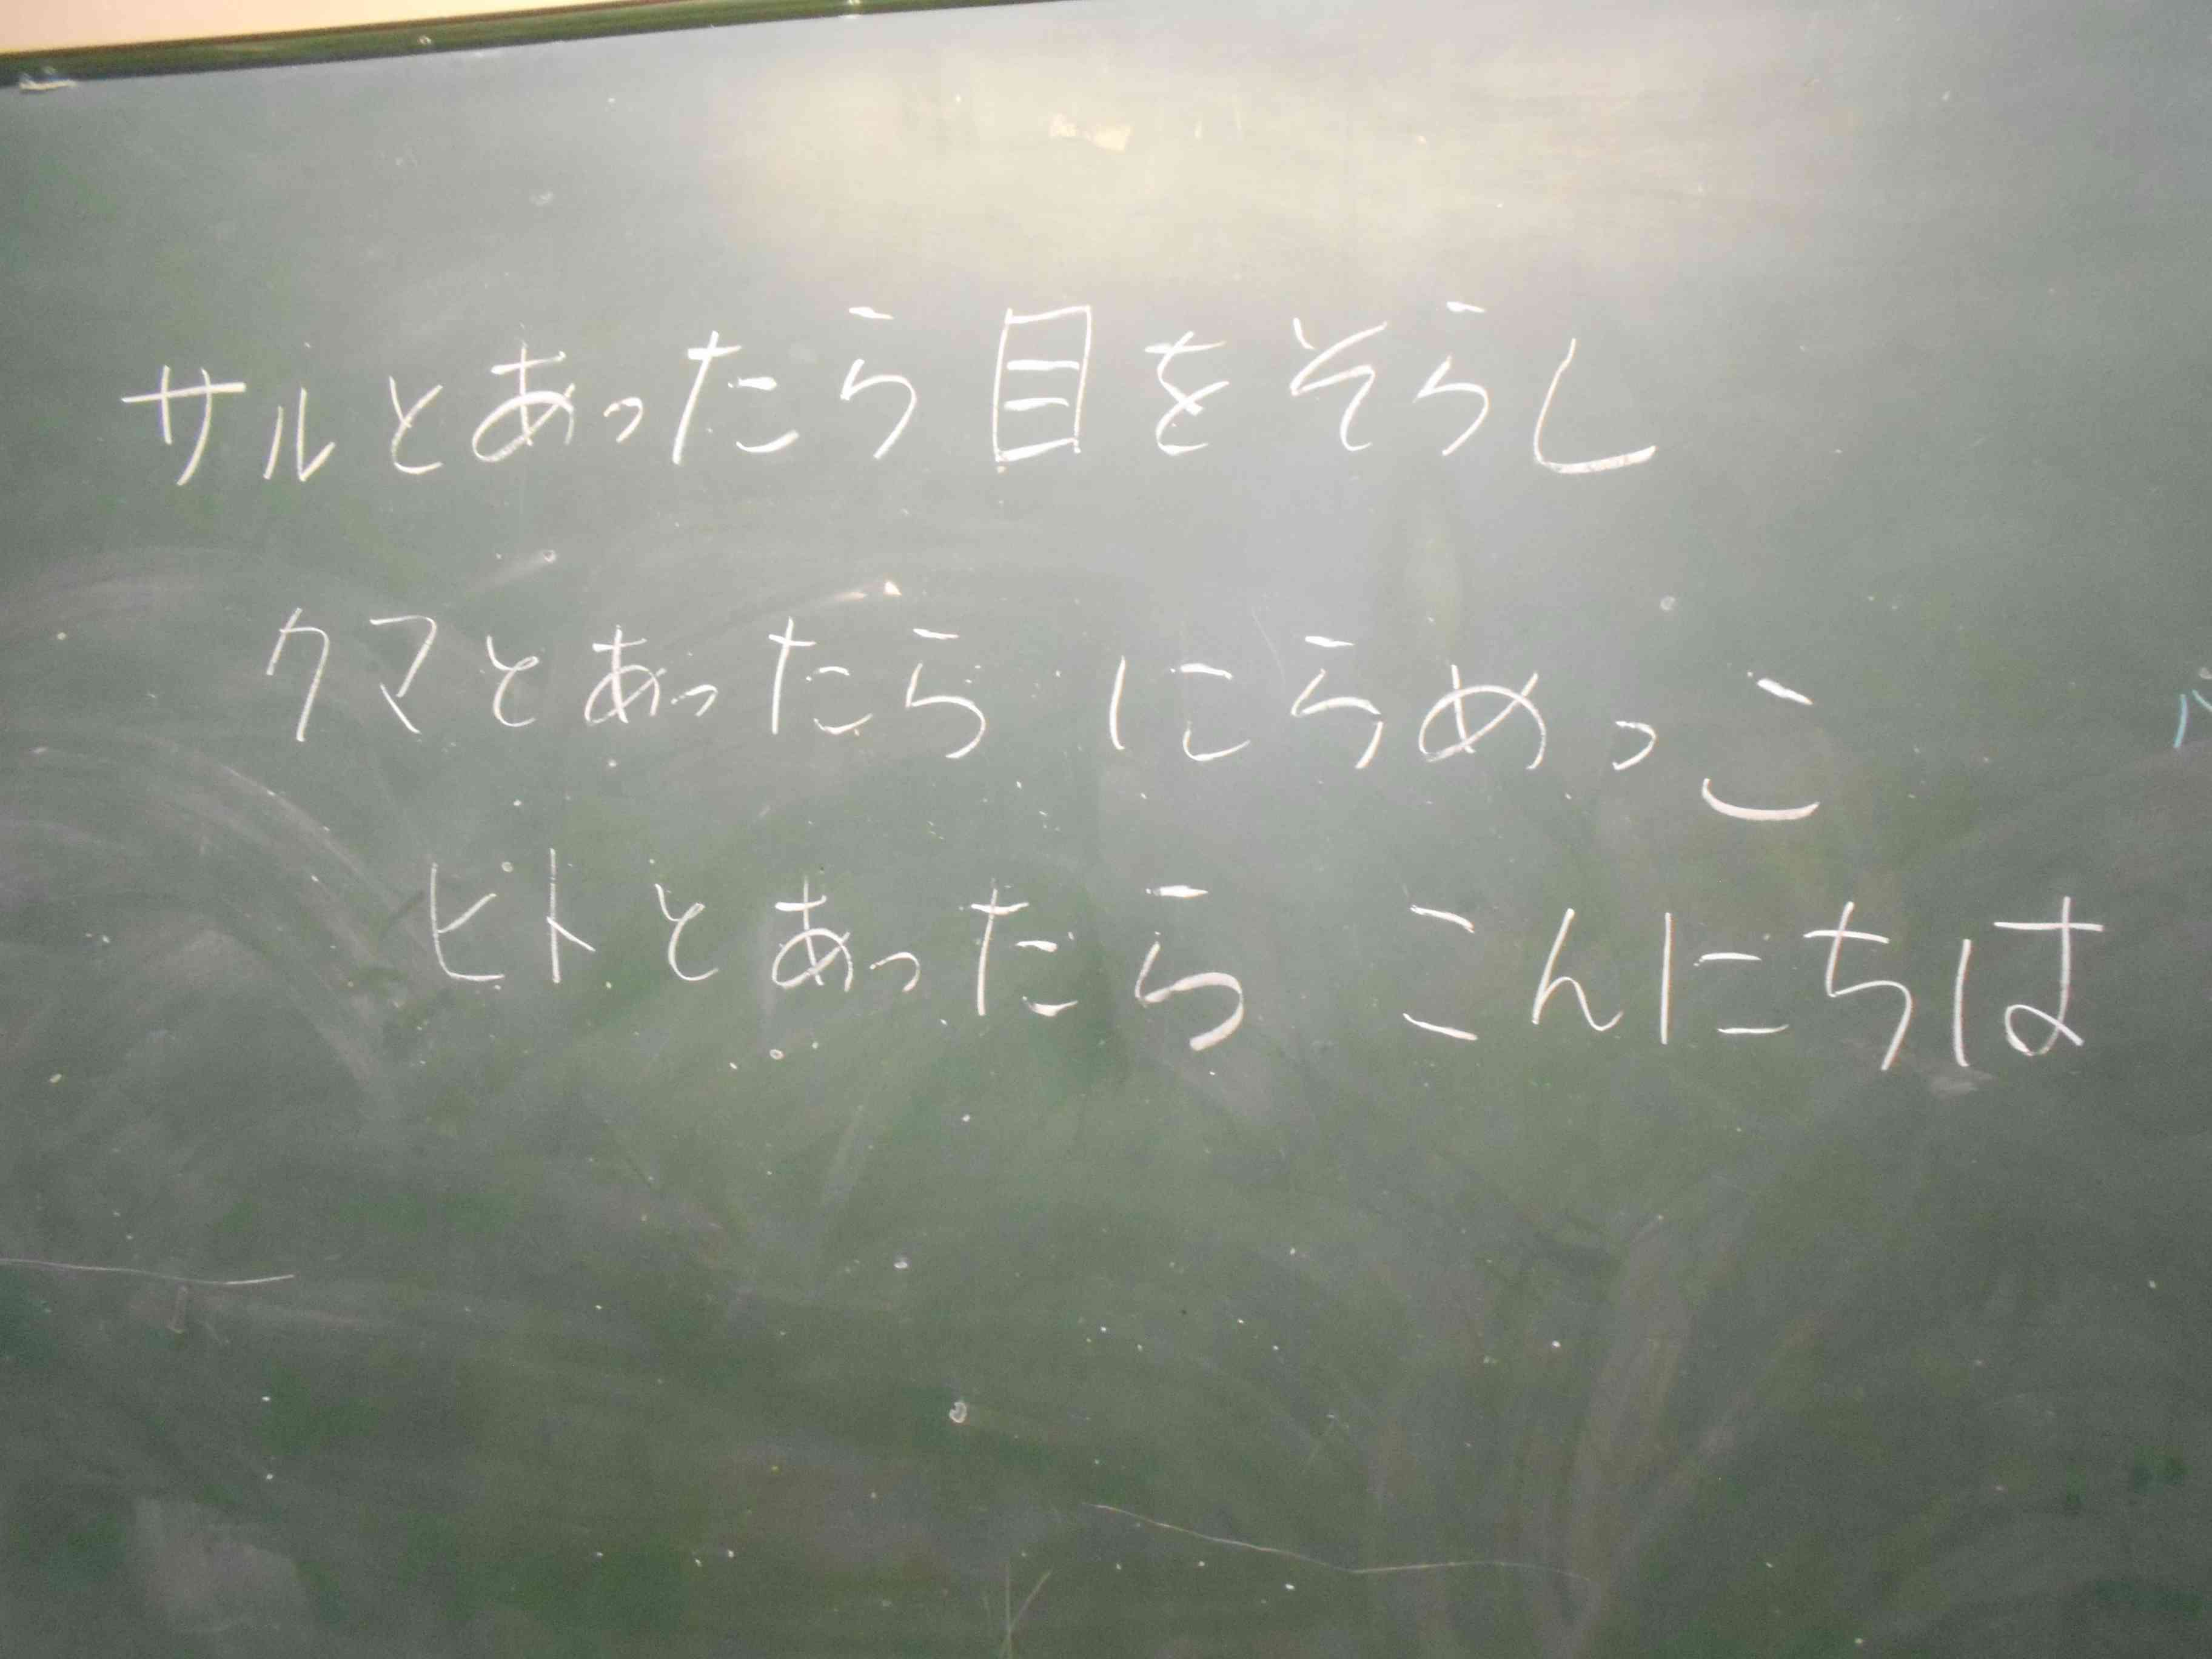 サルとあったら目をそらし
クマとあったら にらめっこ
ヒトとあったら こんにちは